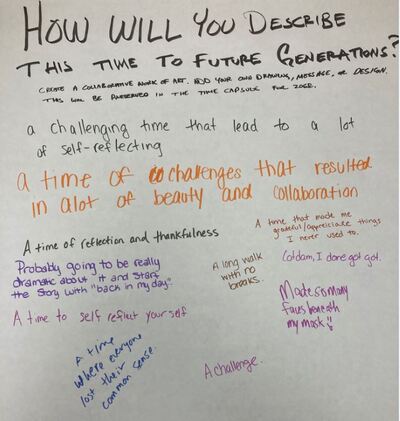 HOW WILL YOU DESCRIBE
THIS TIME TO FUTURE GENERATIONS?
CREATE A COLLABORATIVE WORK OF ART. ADD YOUR OWN DRAWING, MESSAGE, OR DESIGN.
THIS WILL BE PRESERVED IN THE TIME CAPSULE FOR
a challenging time that lead to a lot
of self-reflecting
a time of challenges that resulted
in alot of beauty and collaboration
A time that made me
grateful/appreciate things
I never used to.
A time of reflection and thankfulness
Probably going to be really
dramatic about it and start
the story with "back in my day".
A long walk
with no
breaks.
Gotdam, I done got got.
A time to self reflect yourself
Made so many
faces beneath
my mask!!
A time
where everyone
lost their
common sense.
A challenge.